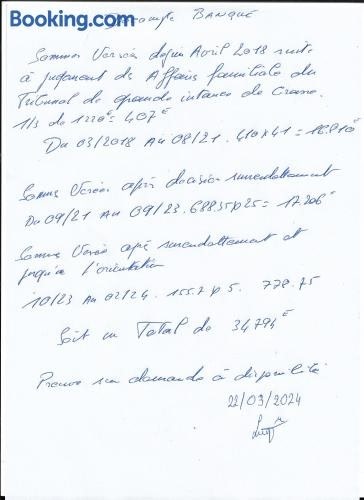 Booking.com
Décompte BANQUE
Sommes Versées depuis Avril 2018 suite
à jugement des Affaires familiales du
Tribunal de grande instance de Grasse.
1/3 de 1220€ = 407€
Du 03/2018 Au 08/21. 410x41 = 16.810€
Somme Versées après décision surendettement
Du 09/21 Au 09/23. 688.35x25 = 17206€
Somme Versée après surendettement et
jusqu'à l'orientation
10/23 Au 02/24. 155.7 x 5. 778.75
Soit un Total de 34794€
Preuve sur demande à disponibilité
22/03/2024